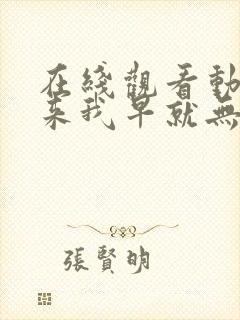 在綫觀看動
來我早就無
張賢明